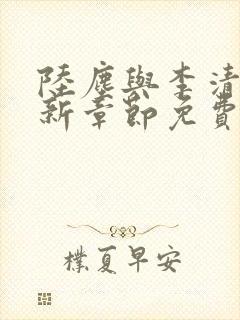 陸塵與李清
新章節免費
樸夏早安